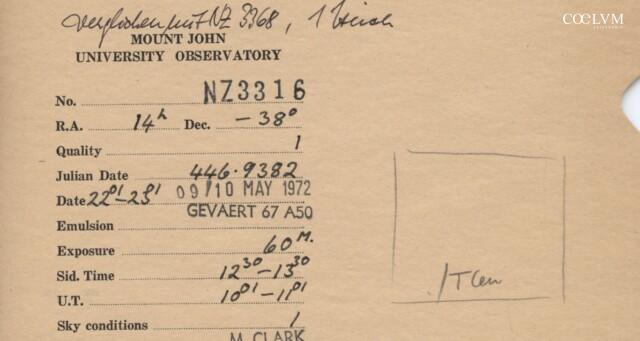 verglichen mit NZ 3368, 1 Strich
COELVM
MOUNT JOHN
UNIVERSITY OBSERVATORY
No. NZ3316
R.A. 14h Dec. -38°
Quality 1
Julian Date 446.9382
Date 22 01 - 23 01 09/10 MAY 1972
GEVAERT 67 A50
Emulsion
Exposure 60 M.
Sid. Time 12 30 - 13 30
U.T. 10 01 - 11 01
./T Cen
Sky conditions 1
M. CLARK